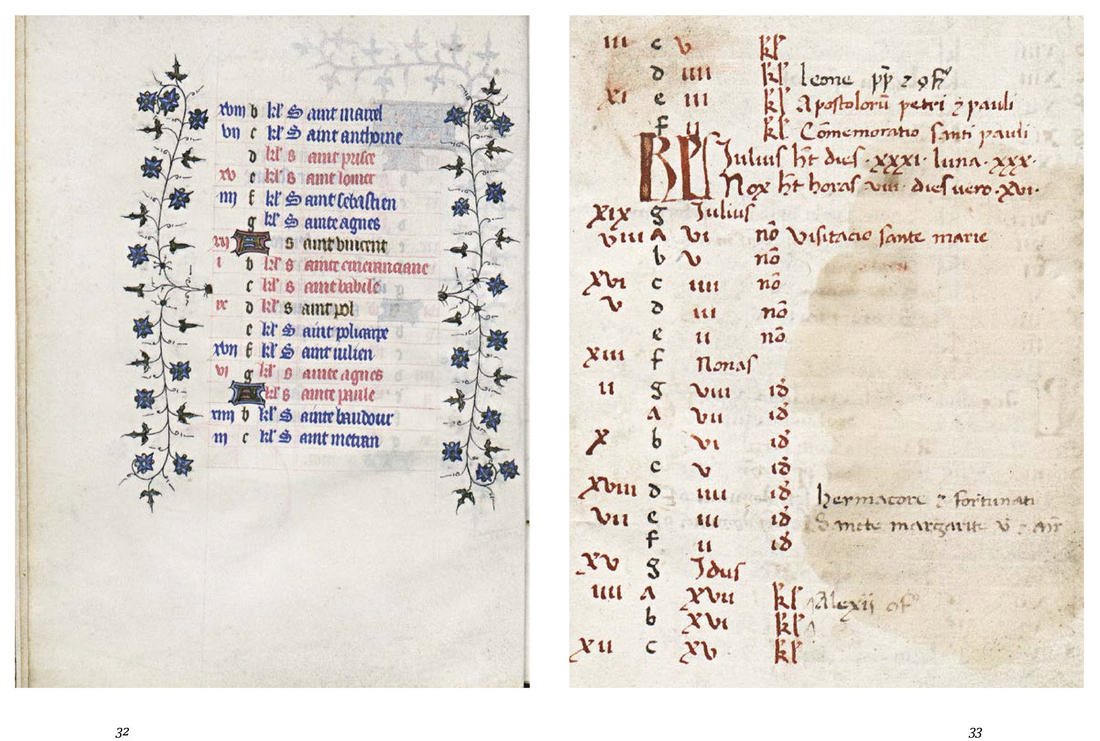 xviii b kl' S aint marcel
vii c kl' S aint anthoine
d kl' s ainte prisce
xv e kl' s aint lomer
iiii f kl' S aint sebastien
g kl' S ainte agnes
xii A s aint vincent
i b kl' s ainte emeranciane
c kl' s aint babile
ix d s aint pol
e kl' S aint policarpe
xvii f kl' S aint iulien
vi g kl' s ainte agnes
A kl' s ainte paule
xiiii b kl' S ainte baudour
iii c kl' S aint metran
32
iii c v kl'
d iiii kl' leone pp̄ ⁊ 9f'
xi e iii kl' Apostolorū petri ⁊ pauli
f ii kl' Comemoratio santi pauli
KL Julius ht dies · xxxi · luna · xxx ·
Nox ht horas viii · dies vero · xvi ·
xix g Julius
viii A vi nō Visitacio sante marie
b v nō
xvi c iiii nō
v d iii nō
e ii nō
xiii f Nonas
ii g viii id'
A vii id'
x b vi id'
c v id'
xviii d iiii id' hermacore ⁊ fortunati
vii e iii id' Sancte margarite v ⁊ mr̄
f ii id'
xv g Idus
iiii A xvii kl' Alexii 9f'
b xvi kl'
xii c xv kl'
33